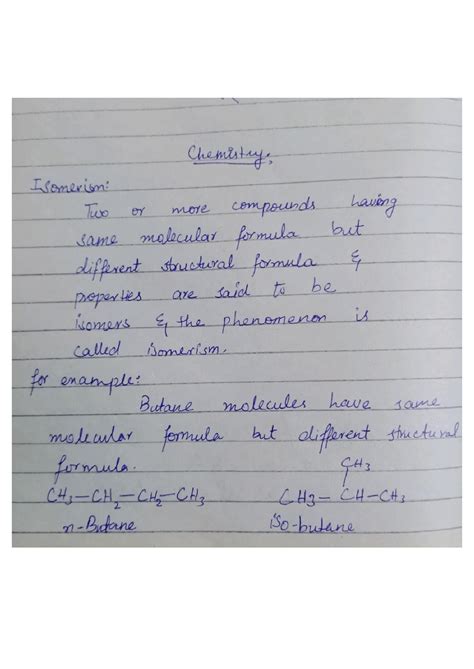 Chemistry:
Isomerism:
Two or more compounds having
same molecular formula but
different structural formula &
properties are said to be
isomers & the phenomenon is
called isomerism.
for example:
Butane molecules have same
molecular formula but different structural
formula.
CH3
CH3—CH2—CH2—CH3 CH3—CH—CH3
n-Butane iso-butane